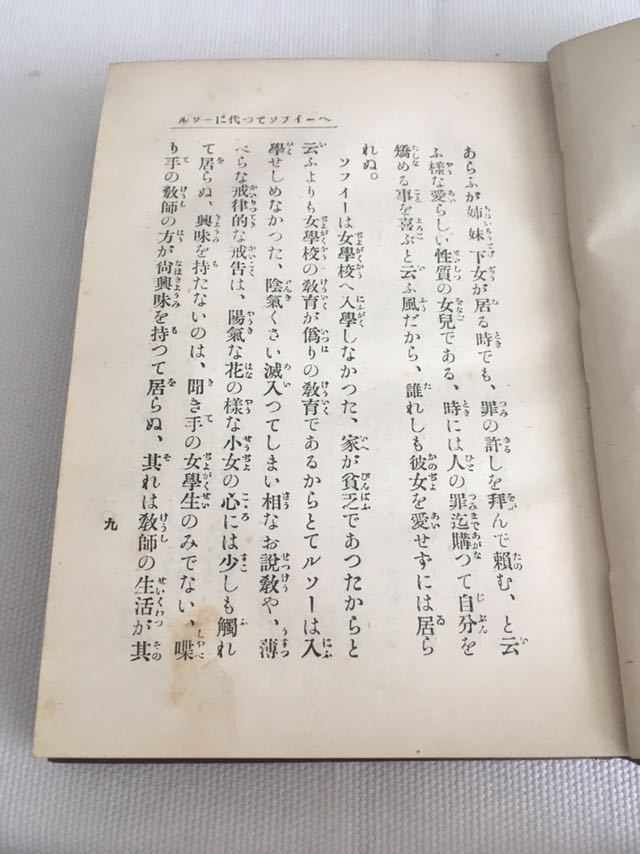 ルソーに代つてソフイーへ
あらふが姉妹下女が居る時でも、罪の許しを拜んで賴む、と云
ふ樣な愛らしい性質の女兒である、時には人の罪迄購つて自分を
矯める事を喜ぶと云ふ風だから、誰れしも彼女を愛せずには居ら
れぬ。
ソフイーは女學校へ入學しなかつた、家が貧乏であつたからと
云ふよりも女學校の敎育が僞りの敎育であるからとてルソーは入
學せしめなかつた、陰氣くさい滅入つてしまい相なお說敎や、薄
べらな戒律的な戒告は、陽氣な花の樣な小女の心には少しも觸れ
て居らぬ、興味を持たないのは、聞き手の女學生のみでない、喋
り手の敎師の方が尙興味を持つて居らぬ、其れは敎師の生活が其
九